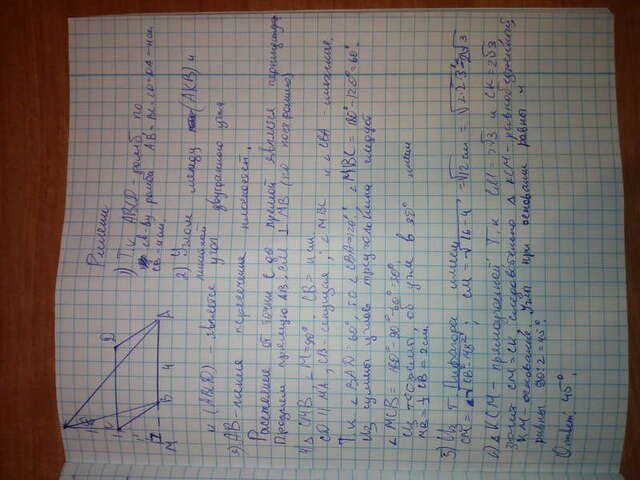 Решение
1) Т.к ABCD - ромб по
св-ву ромба AB=BC=CD=DA=4см.
CB=4см
2) Углом между (AKB) и
и (ABCD) - является угол
линейный угол двугранного угла
3) AB - линия пересечения плоскостей.
Расстояние от точки C до прямой является перпендикуляр
Продлим прямую AB. CM ⊥ MB (по построению)
4) △ CMB ∠M=90°. CB=4см.
CD || MA, CB - секущая, ∠MBC и ∠CBA - смежные.
Т.к ∠BAD=60°, то ∠CBA=120°, ∠MBC=180°-120°=60°.
Из суммы углов треугольника следует
∠MCB=180°-90°-60°=30°
Из теоремы об угле в 30° имеем
MB=½ CB=2см.
5) Из т. Пифагора имеем
CM=√16-4 = √12см = √2·2·3 = 2√3
6) △ KCM - прямоугольный. Т.к CM=2√3 и CK=2√3
CM=CK. Следовательно △ KCM - равнобедренный
KM - основание. Углы при основании равны и
равны 90:2=45°.
Ответ. 45°.
D
A
4
B
M